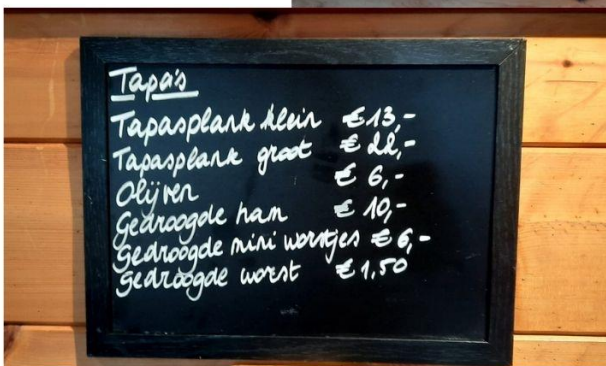 Tapa's
Tapasplank klein € 13,-
Tapasplank groot € 22,-
Olijven € 6,-
Gedroogde ham € 10,-
Gedroogde mini worstjes € 6,-
Gedroogde worst € 1,50